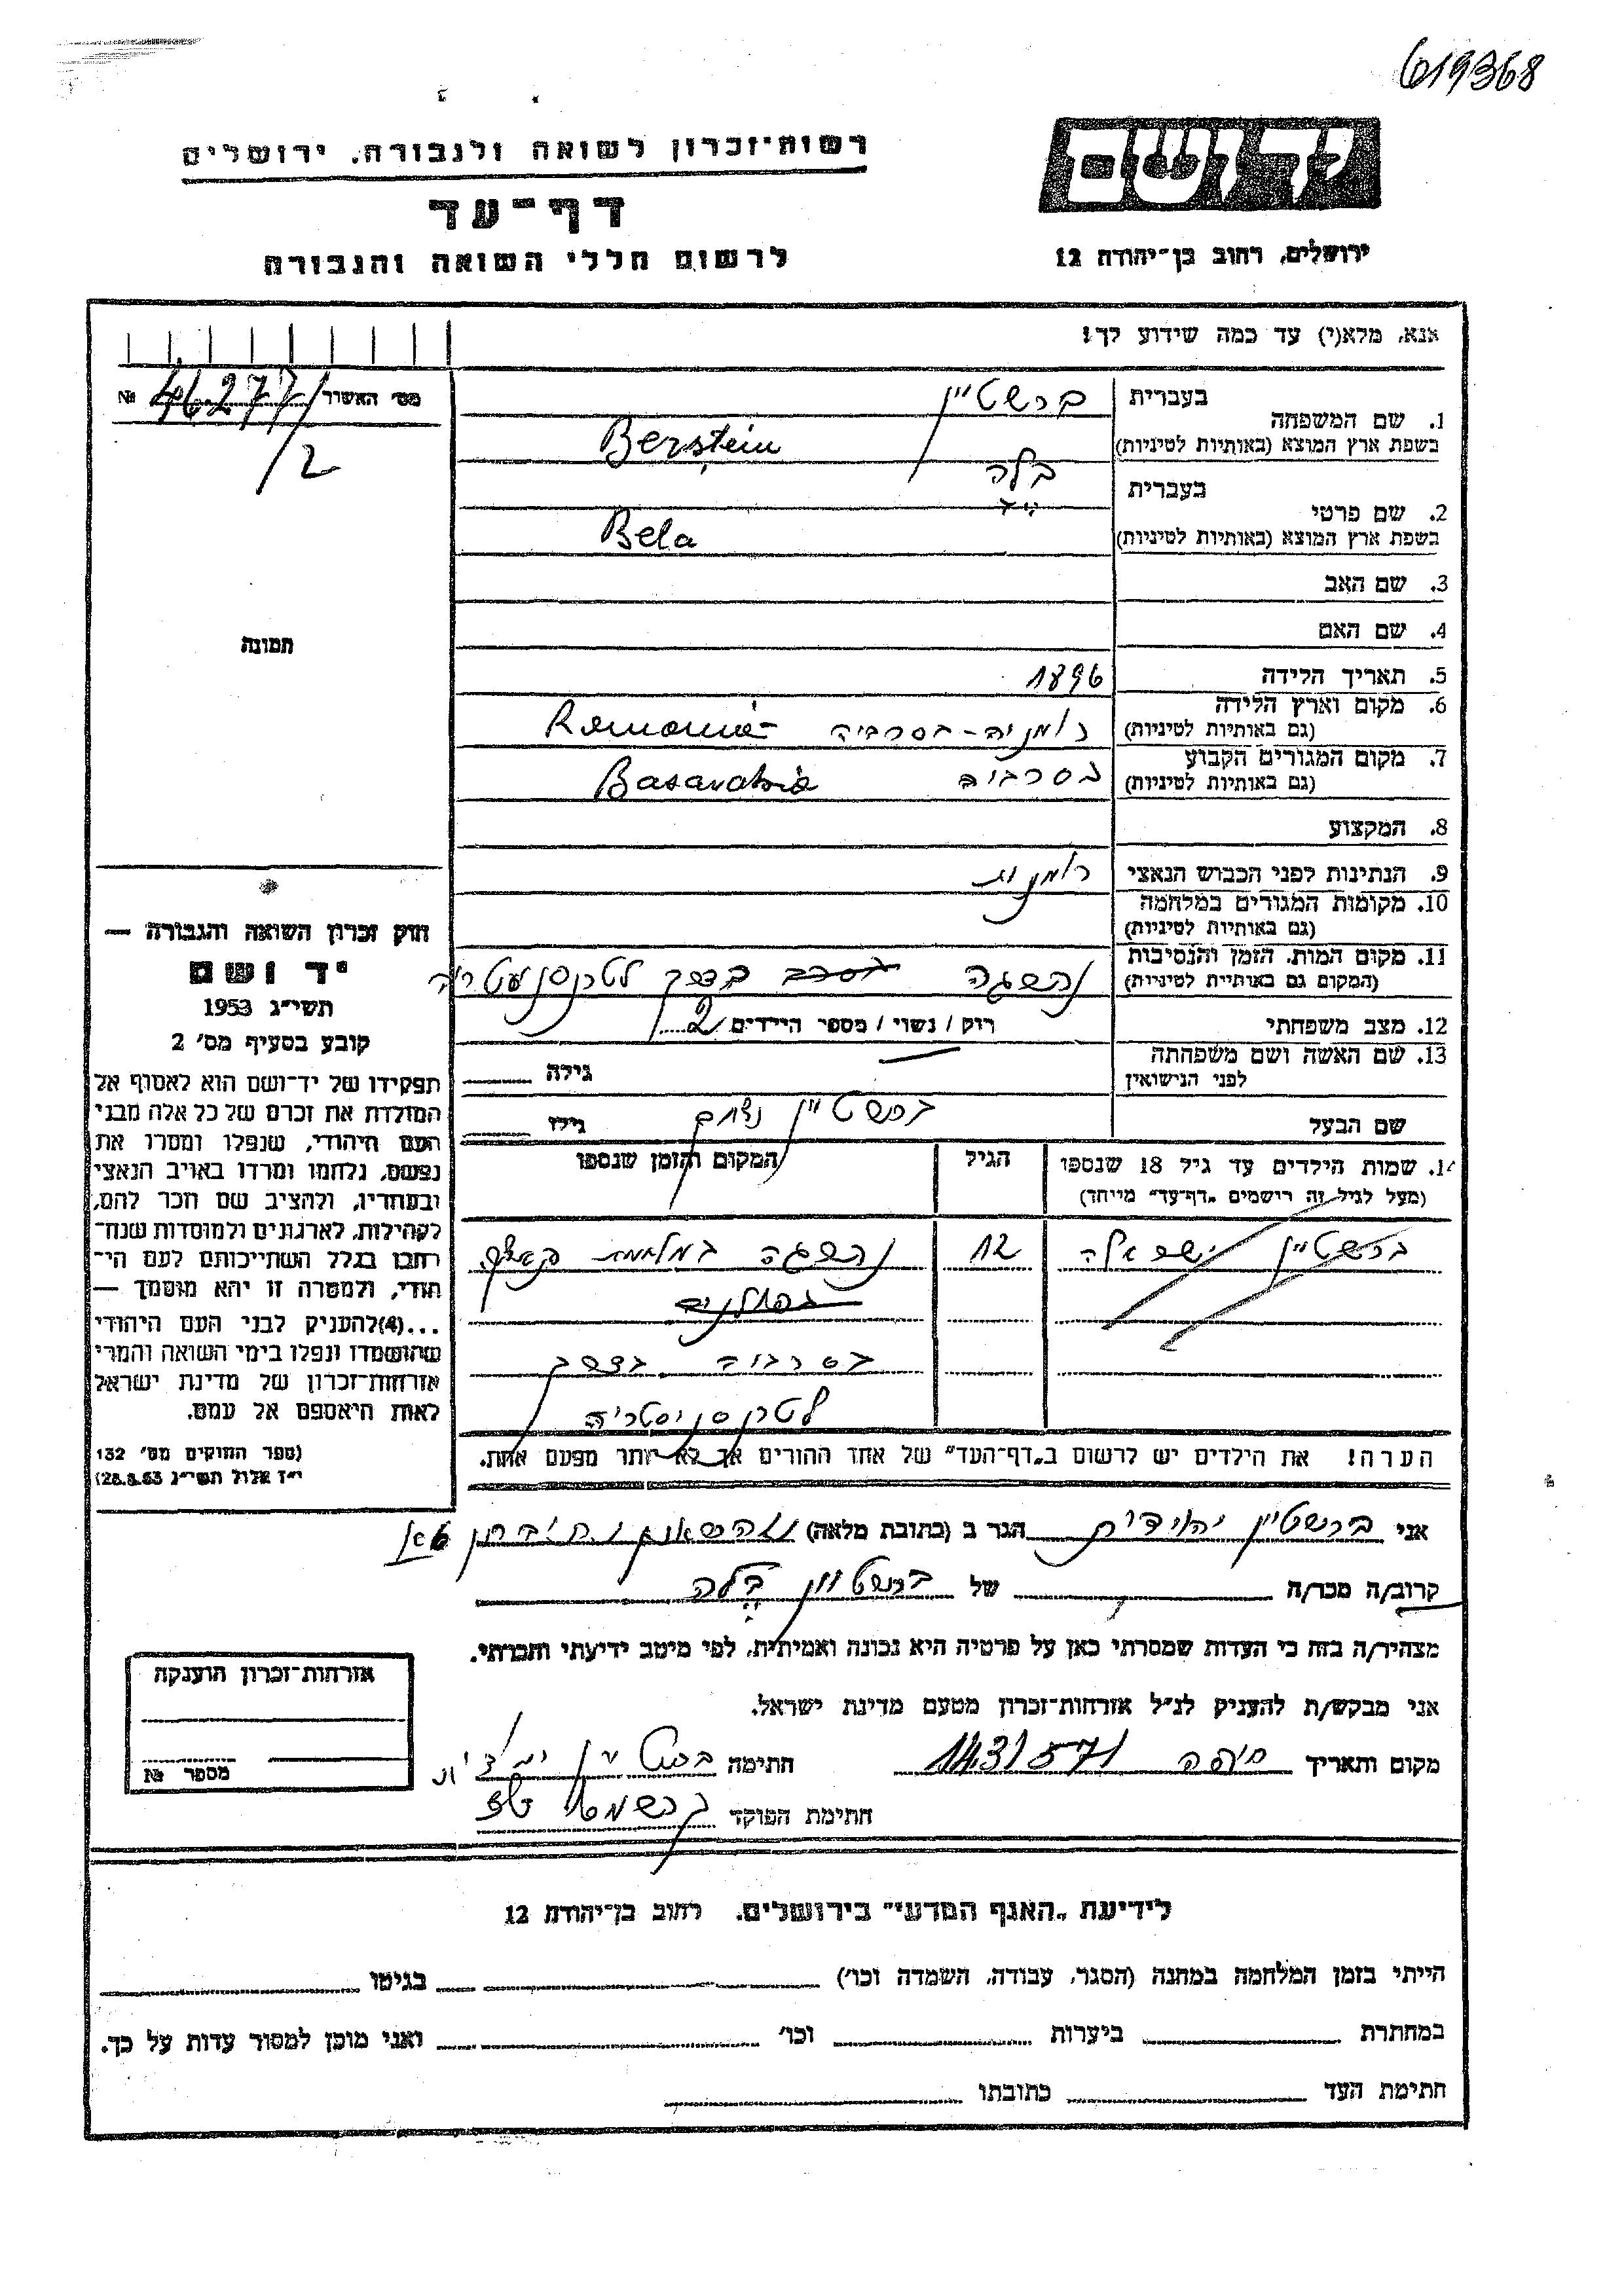 619368
רשות־זכרון לשואה ולגבורה, ירושלים
דף־עד
לרשום חללי השואה והגבורה
יד ושם
ירושלים, רחוב בן־יהודה 12
אנא, מלא(י) עד כמה שידוע לך!
מס' האשור 46277 №
/2
תמונה
1. שם המשפחה
בעברית ברשטיין
בשפת ארץ המוצא (באותיות לטיניות) Berstein
2. שם פרטי
בעברית בלה
בשפת ארץ המוצא (באותיות לטיניות) Bela
3. שם האב
4. שם האם
5. תאריך הלידה 1896
6. מקום וארץ הלידה
(גם באותיות לטיניות) רומניה - בסרביה Romania -
7. מקום המגורים הקבוע
(גם באותיות לטיניות) בסרביה Basarabia
8. המקצוע
9. הנתינות לפני הכבוש הנאצי רומנית
10. מקומות המגורים במלחמה
(גם באותיות לטיניות)
11. מקום המות, הזמן והנסיבות
(המקום גם באותיות לטיניות) נהרגה בדרך לטרנסניסטריה
12. מצב משפחתי רוק / נשוי / מספר הילדים 2
13. שם האשה ושם משפחתה
לפני הנישואין גילה
שם הבעל ברשטיין גילו
14. שמות הילדים עד גיל 18 שנספו הגיל המקום והזמן שנספו
(מעל לגיל זה רישמים "דף־עד" מייחד)
ברשטיין 12 נהרגה במלחמת
בסרביה בדרך
לטרנסניסטריה
הערה! את הילדים יש לרשום ב"דף־העד" של אחד ההורים אך לא יותר מפעם אחת.
חוק זכרון השואה והגבורה —
יד ושם
תשי"ג 1953
קובע בסעיף מס' 2
תפקידו של יד־ושם הוא לאסוף אל
המולדת את זכרם של כל אלה מבני
העם היהודי, שנפלו ומסרו את
נפשם, נלחמו ומרדו באויב הנאצי
ובעוזריו, ולהציב שם וזכר להם,
לקהילות, לארגונים ולמוסדות שנח־
רבו בגלל השתייכותם לעם הי־
הודי, ולמטרה זו יהא מוסמך —
...(4)להעניק לבני העם היהודי
שהושמדו ונפלו בימי השואה והמרי
אזרחות־זכרון של מדינת ישראל
לאות היאספם אל עמם.
(ספר החוקים מס' 132
י"ז אלול תשי"ג 28.8.53)
אני ברשטיין יהודית הגר ב (כתובת מלאה)
קרוב/ה מכר/ה של ברשטיין בלה
מצהיר/ה בזה כי העדות שמסרתי כאן על פרטיה היא נכונה ואמיתית, לפי מיטב ידיעתי והכרתי.
אני מבקש/ת להעניק לנ"ל אזרחות־זכרון מטעם מדינת ישראל.
מקום ותאריך חיפה חתימה ברשטיין יהודית
חתימת הפוקד
אזרחות־זכרון הוענקה
מספר №
לידיעת "האגף המדעי" בירושלים, רחוב בן־יהודה 12
הייתי בזמן המלחמה במחנה (הסגר, עבודה, השמדה וכו') בגיטו
במחתרת ביערות וכו' ואני מוכן למסור עדות על כך.
חתימת העד כתובתו